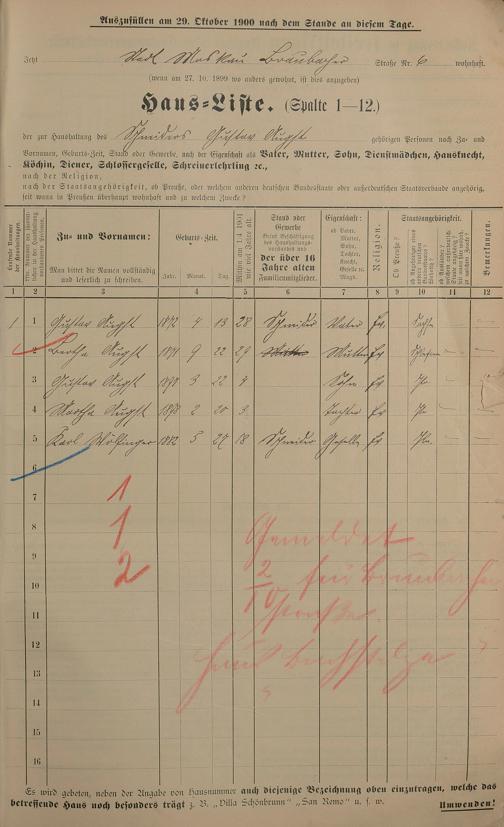 Auszufüllen am 29. Oktober 1900 nach dem Stande an diesem Tage.
Jetzt Stadt Moskau Braubacher Straße Nr. 6 wohnhaft.
(wenn am 27. 10. 1899 wo anders gewohnt, ist dies anzugeben)
Haus-Liste. (Spalte 1—12.)
der zur Haushaltung des Schneiders Gustav Augst gehörigen Personen nach Zu- und
Vornamen, Geburts-Zeit, Stand oder Gewerbe, nach der Eigenschaft als Vater, Mutter, Sohn, Dienstmädchen, Hausknecht,
Köchin, Diener, Schlossergeselle, Schreinerlehrling ec.,
nach der Religion,
nach der Staatsangehörigkeit, ob Preuße, oder welchem anderen deutschen Bundesstaate oder außerdeutschen Staatsverbande angehörig,
seit wann in Preußen überhaupt wohnhaft und zu welchem Zwecke?
Zu- und Vornamen:
Man bittet die Namen vollständig und leserlich zu schreiben.
Geburts-Zeit.
Jahr. Monat. Tag.
Stand oder Gewerbe
der über 16 Jahre alten Familienmitglieder.
Eigenschaft:
ob Vater, Mutter, Sohn, Tochter, Knecht, Geselle u. Magd.
Religion.
Staatsangehörigkeit.
Ob Preuße?
Bemerkungen.
1 2 3 4 5 6 7 8 9 10 11 12
1 1 Gustav Augst 1872 4 13 28 Schneider Vater Ev Sachse —
2 Bertha Augst 1871 9 22 29 Mutter Ev —
3 Gustav Augst 1898 3 22 Sohn Ev —
4 Martha Augst 1898 2 20 Tochter Ev —
5 Karl Wölfinger 1882 5 27 18 Schneider Geselle Ev —
6
7 1
8 1 Gemeldet
9 2
10 2 10 für Braubacher
11 Straße
12
13
14
15
16
Es wird gebeten, neben der Angabe von Hausnummer auch diejenige Bezeichnung oben einzutragen, welche das
betreffende Haus noch besonders trägt z. B. „Villa Schönbrunn" „San Remo" u. s. w. Umwenden!